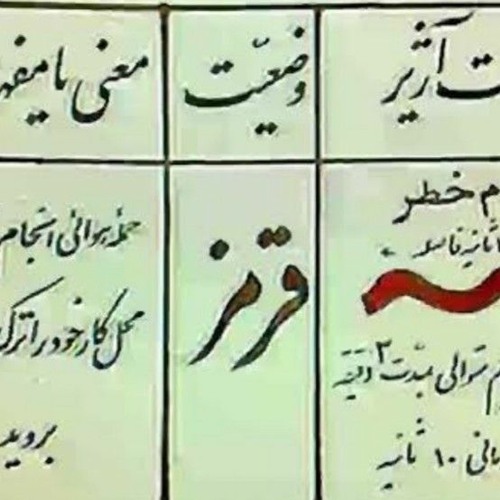 ت آژیر
وضعیّت
معنی یا مفه
م خطر
ثانیه فاصله
م متوالی بمدّت ۲ دقیقه
انی ۱۰ ثانیه
قرمز
حمله هوائی انجام
محل کار خود را ترک
بروید